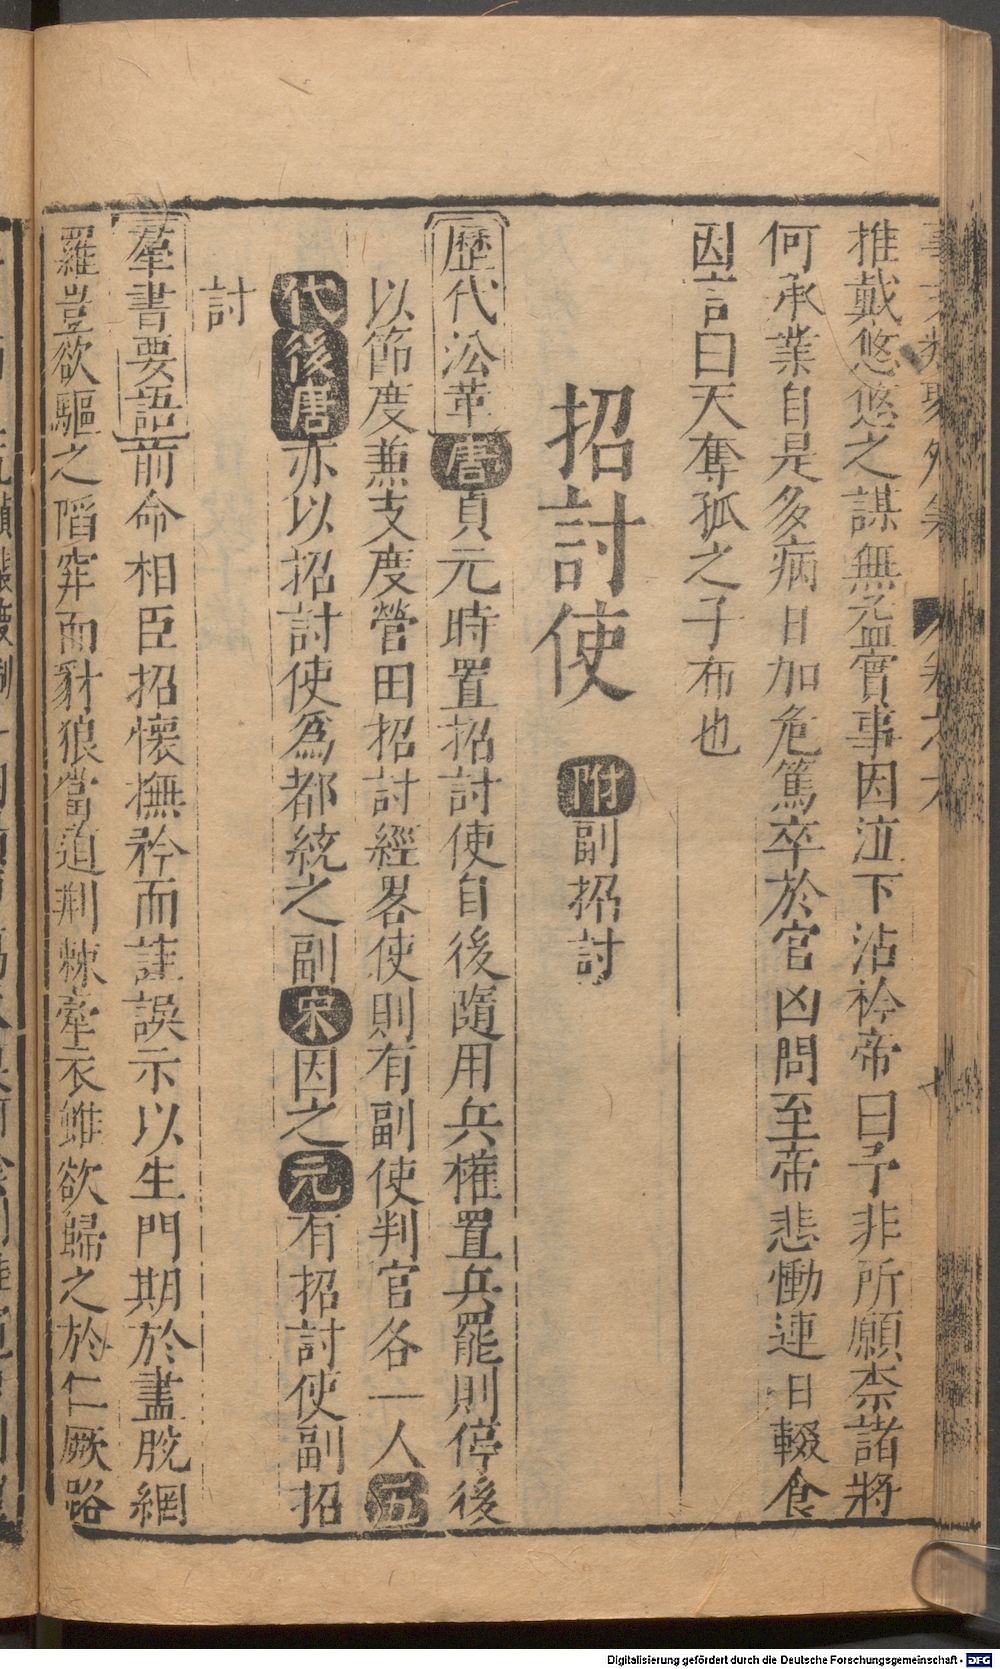 推戴悠悠之謀無益實事因泣下沾衿帝曰予非所願柰諸將
何承業自是多病日加危篤卒於官凶問至帝悲慟連日輟食
因言曰天奪孤之子布也
招討使 附副招討
歷代㳂革唐貞元時置招討使自後隨用兵權置兵罷則停後
以節度兼支度營田招討經畧使則有副使判官各一人五
代後唐亦以招討使爲都統之副宋因之元有招討使副招
討
羣書要語前命相臣招懷撫衿而詿誤示以生門期於盡脫網
羅豈欲驅之陷穽而豺狼當道荆棘牽衣雖欲歸之於仁厥路
Digitalisierung gefördert durch die Deutsche Forschungsgemeinschaft - DFG